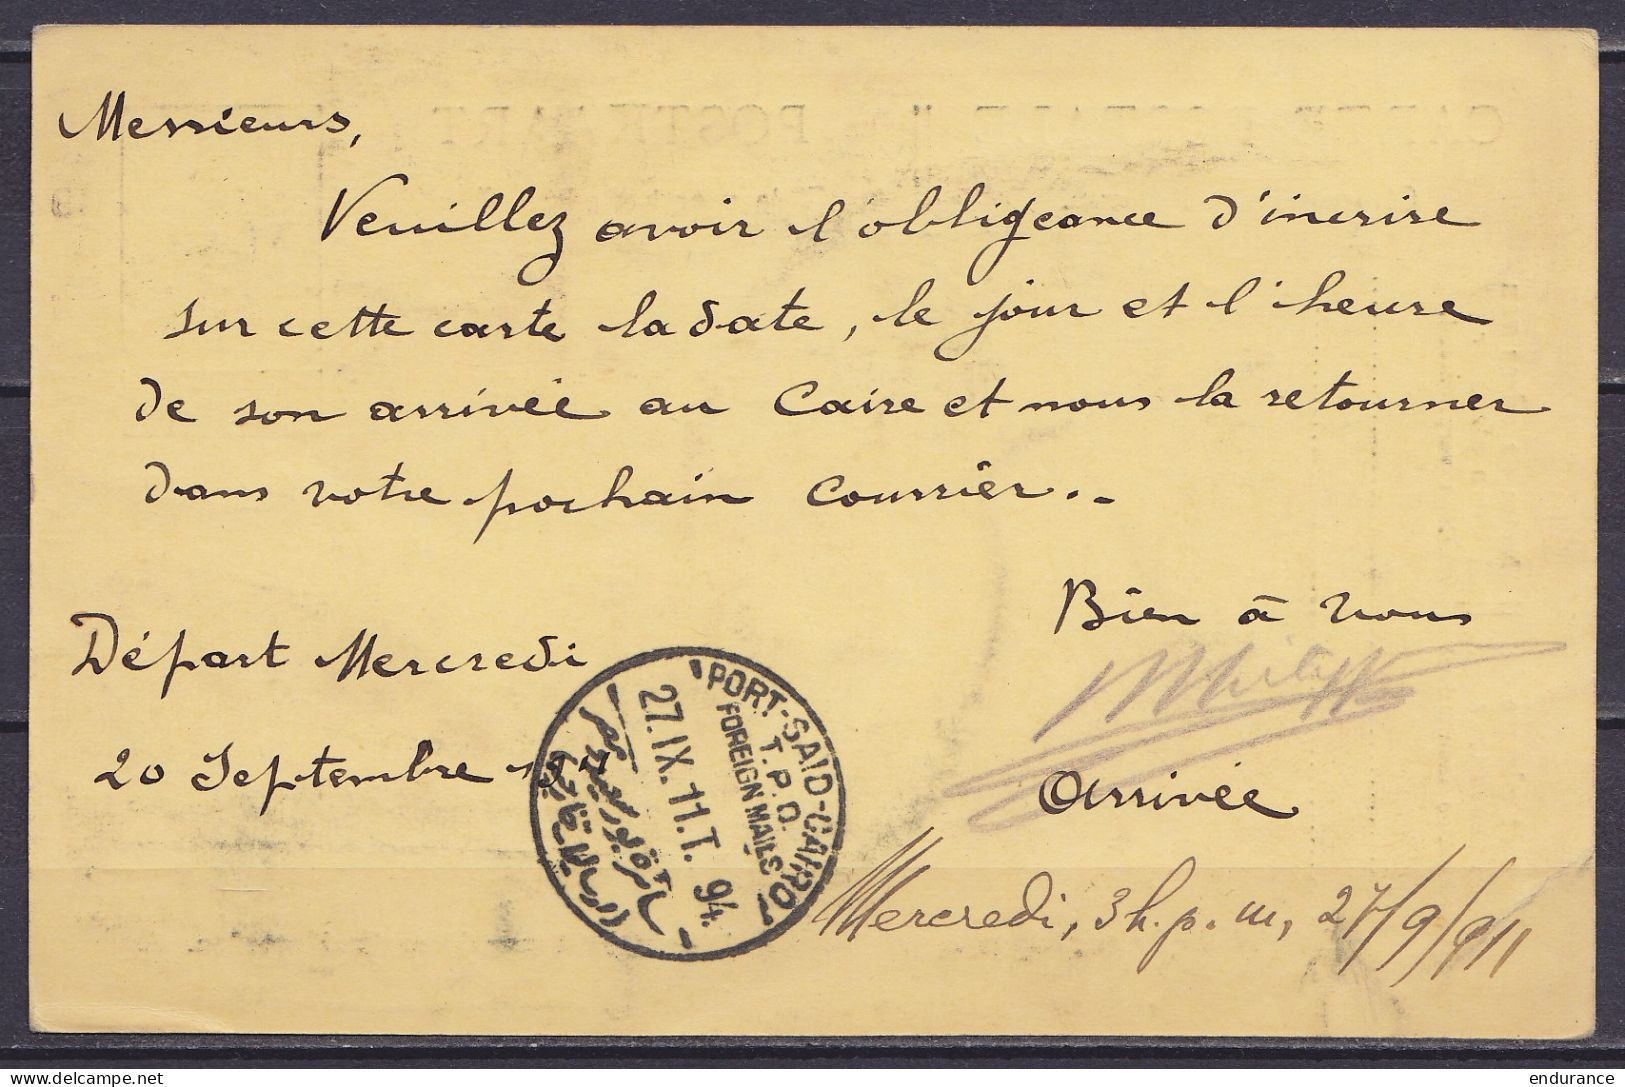 Messieurs,
Veuillez avoir l'obligeance d'inscrire
sur cette carte la date, le jour et l'heure
de son arrivée au Caire et nous la retourner
dans votre pochain courrier.-
Bien à vous
Départ Mercredi
20 Septembre
Arrivée
Mercredi, 3 h. p. m, 27/9/911
PORT-SAID-CAIRO
T.P.O.
FOREIGN MAILS
27.IX.11.T. 94.
delcampe.net
endurance